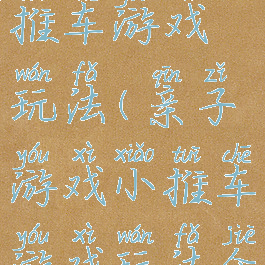 推车游戏
wán fǎ qīn zǐ
玩法(亲子
yóu xì xiǎo tuī chē
游戏小推车
yóu xì wán fǎ jiě
游戏玩法